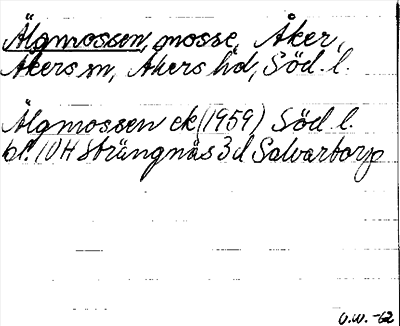 Älgmossen, mosse, Åker,
Åkers sn, Åkers hd, Söd. l.
Älgmossen ek (1959) Söd. l.
bl. 10H Strängnäs 3d Salvartorp
O.W. -62